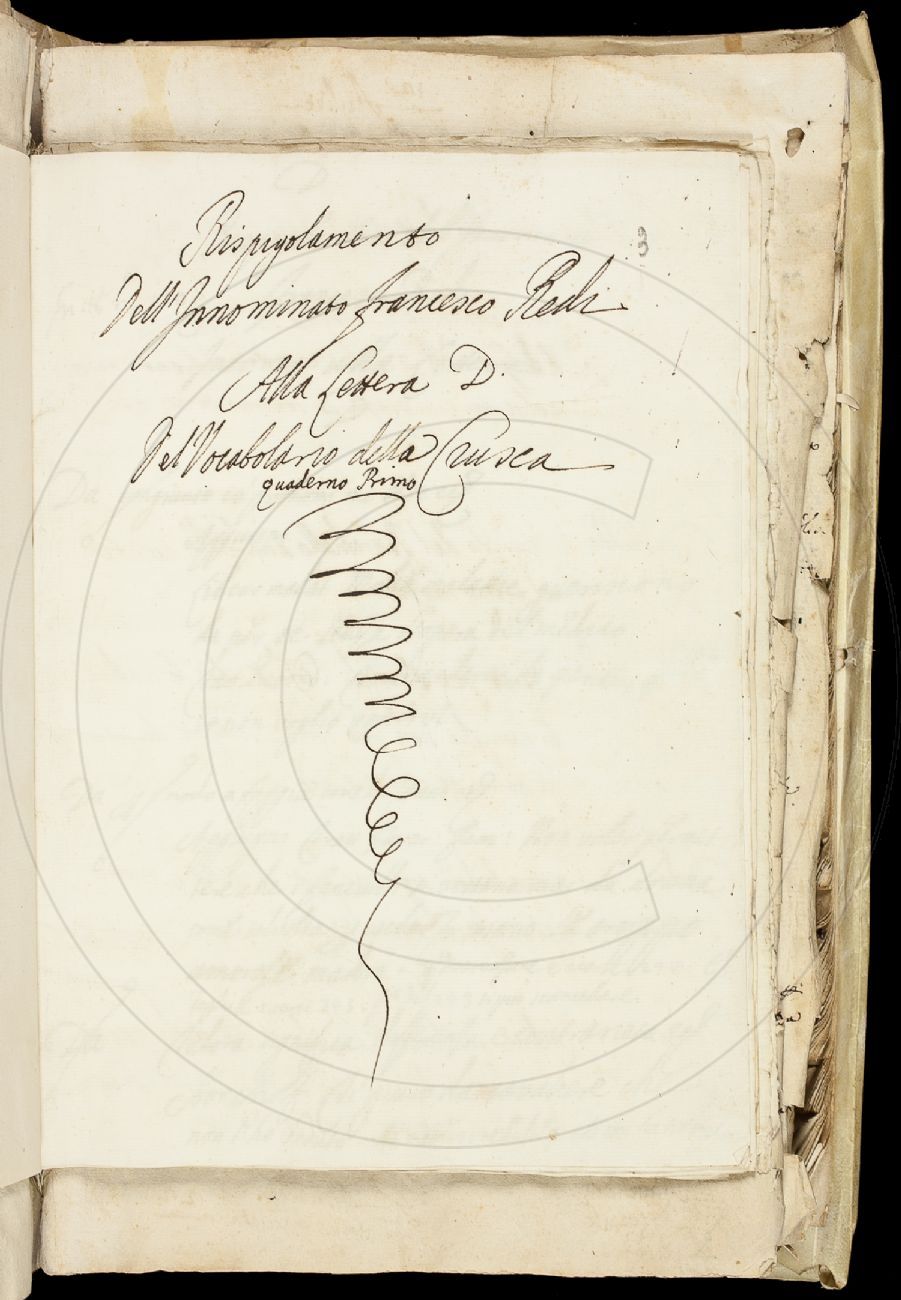 3
Rispigolamento
Dell'Innominato Francesco Redi
Alla Lettera D.
Del Vocabolario della Crusca
quaderno Primo